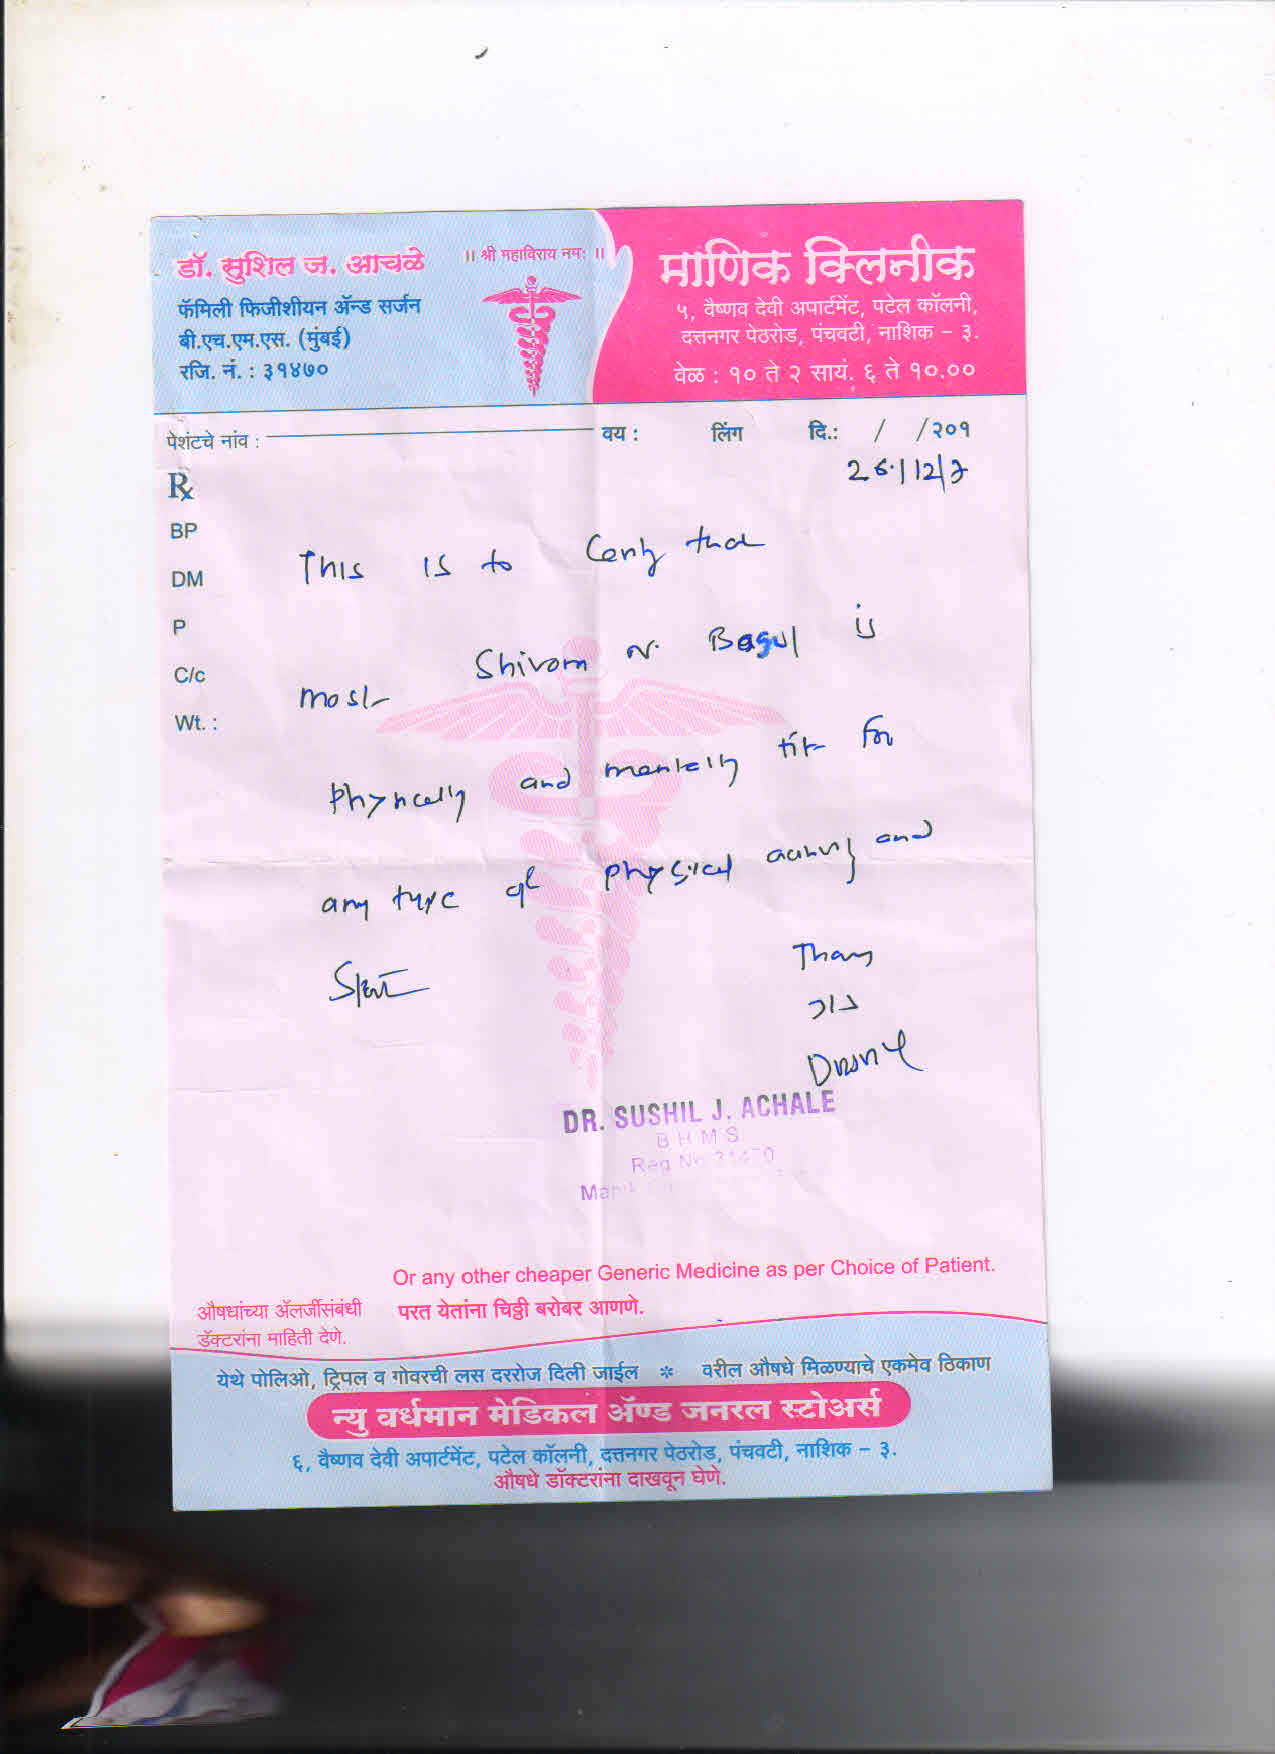 डॉ. सुशिल ज. आचळे
फॅमिली फिजीशीयन ॲन्ड सर्जन
बी.एच.एम.एस. (मुंबई)
रजि. नं. : ३१४७०
।। श्री महाविराय नमः ।।
माणिक क्लिनीक
५, वैष्णव देवी अपार्टमेंट, पटेल कॉलनी,
दत्तनगर पेठरोड, पंचवटी, नाशिक – ३.
वेळ : १० ते २ सायं. ६ ते १०.००
पेशंटचे नांव : वय : लिंग दि.: / /२०१
26/12/
Rx
BP
DM
P
C/c
Wt. :
This is to
Shivam N. Bagul is
and mentally fit for
any type of physical and
DR. SUSHIL J. ACHALE
B H M S
Reg No 31470
Or any other cheaper Generic Medicine as per Choice of Patient.
औषधांच्या ॲलर्जीसंबंधी
डॅक्टरांना माहिती देणे.
परत येतांना चिठ्ठी बरोबर आणणे.
येथे पोलिओ, ट्रिपल व गोवरची लस दररोज दिली जाईल * वरील औषधे मिळण्याचे एकमेव ठिकाण
न्यु वर्धमान मेडिकल ॲण्ड जनरल स्टोअर्स
६, वैष्णव देवी अपार्टमेंट, पटेल कॉलनी, दत्तनगर पेठरोड, पंचवटी, नाशिक – ३.
औषधे डॉक्टरांना दाखवून घेणे.